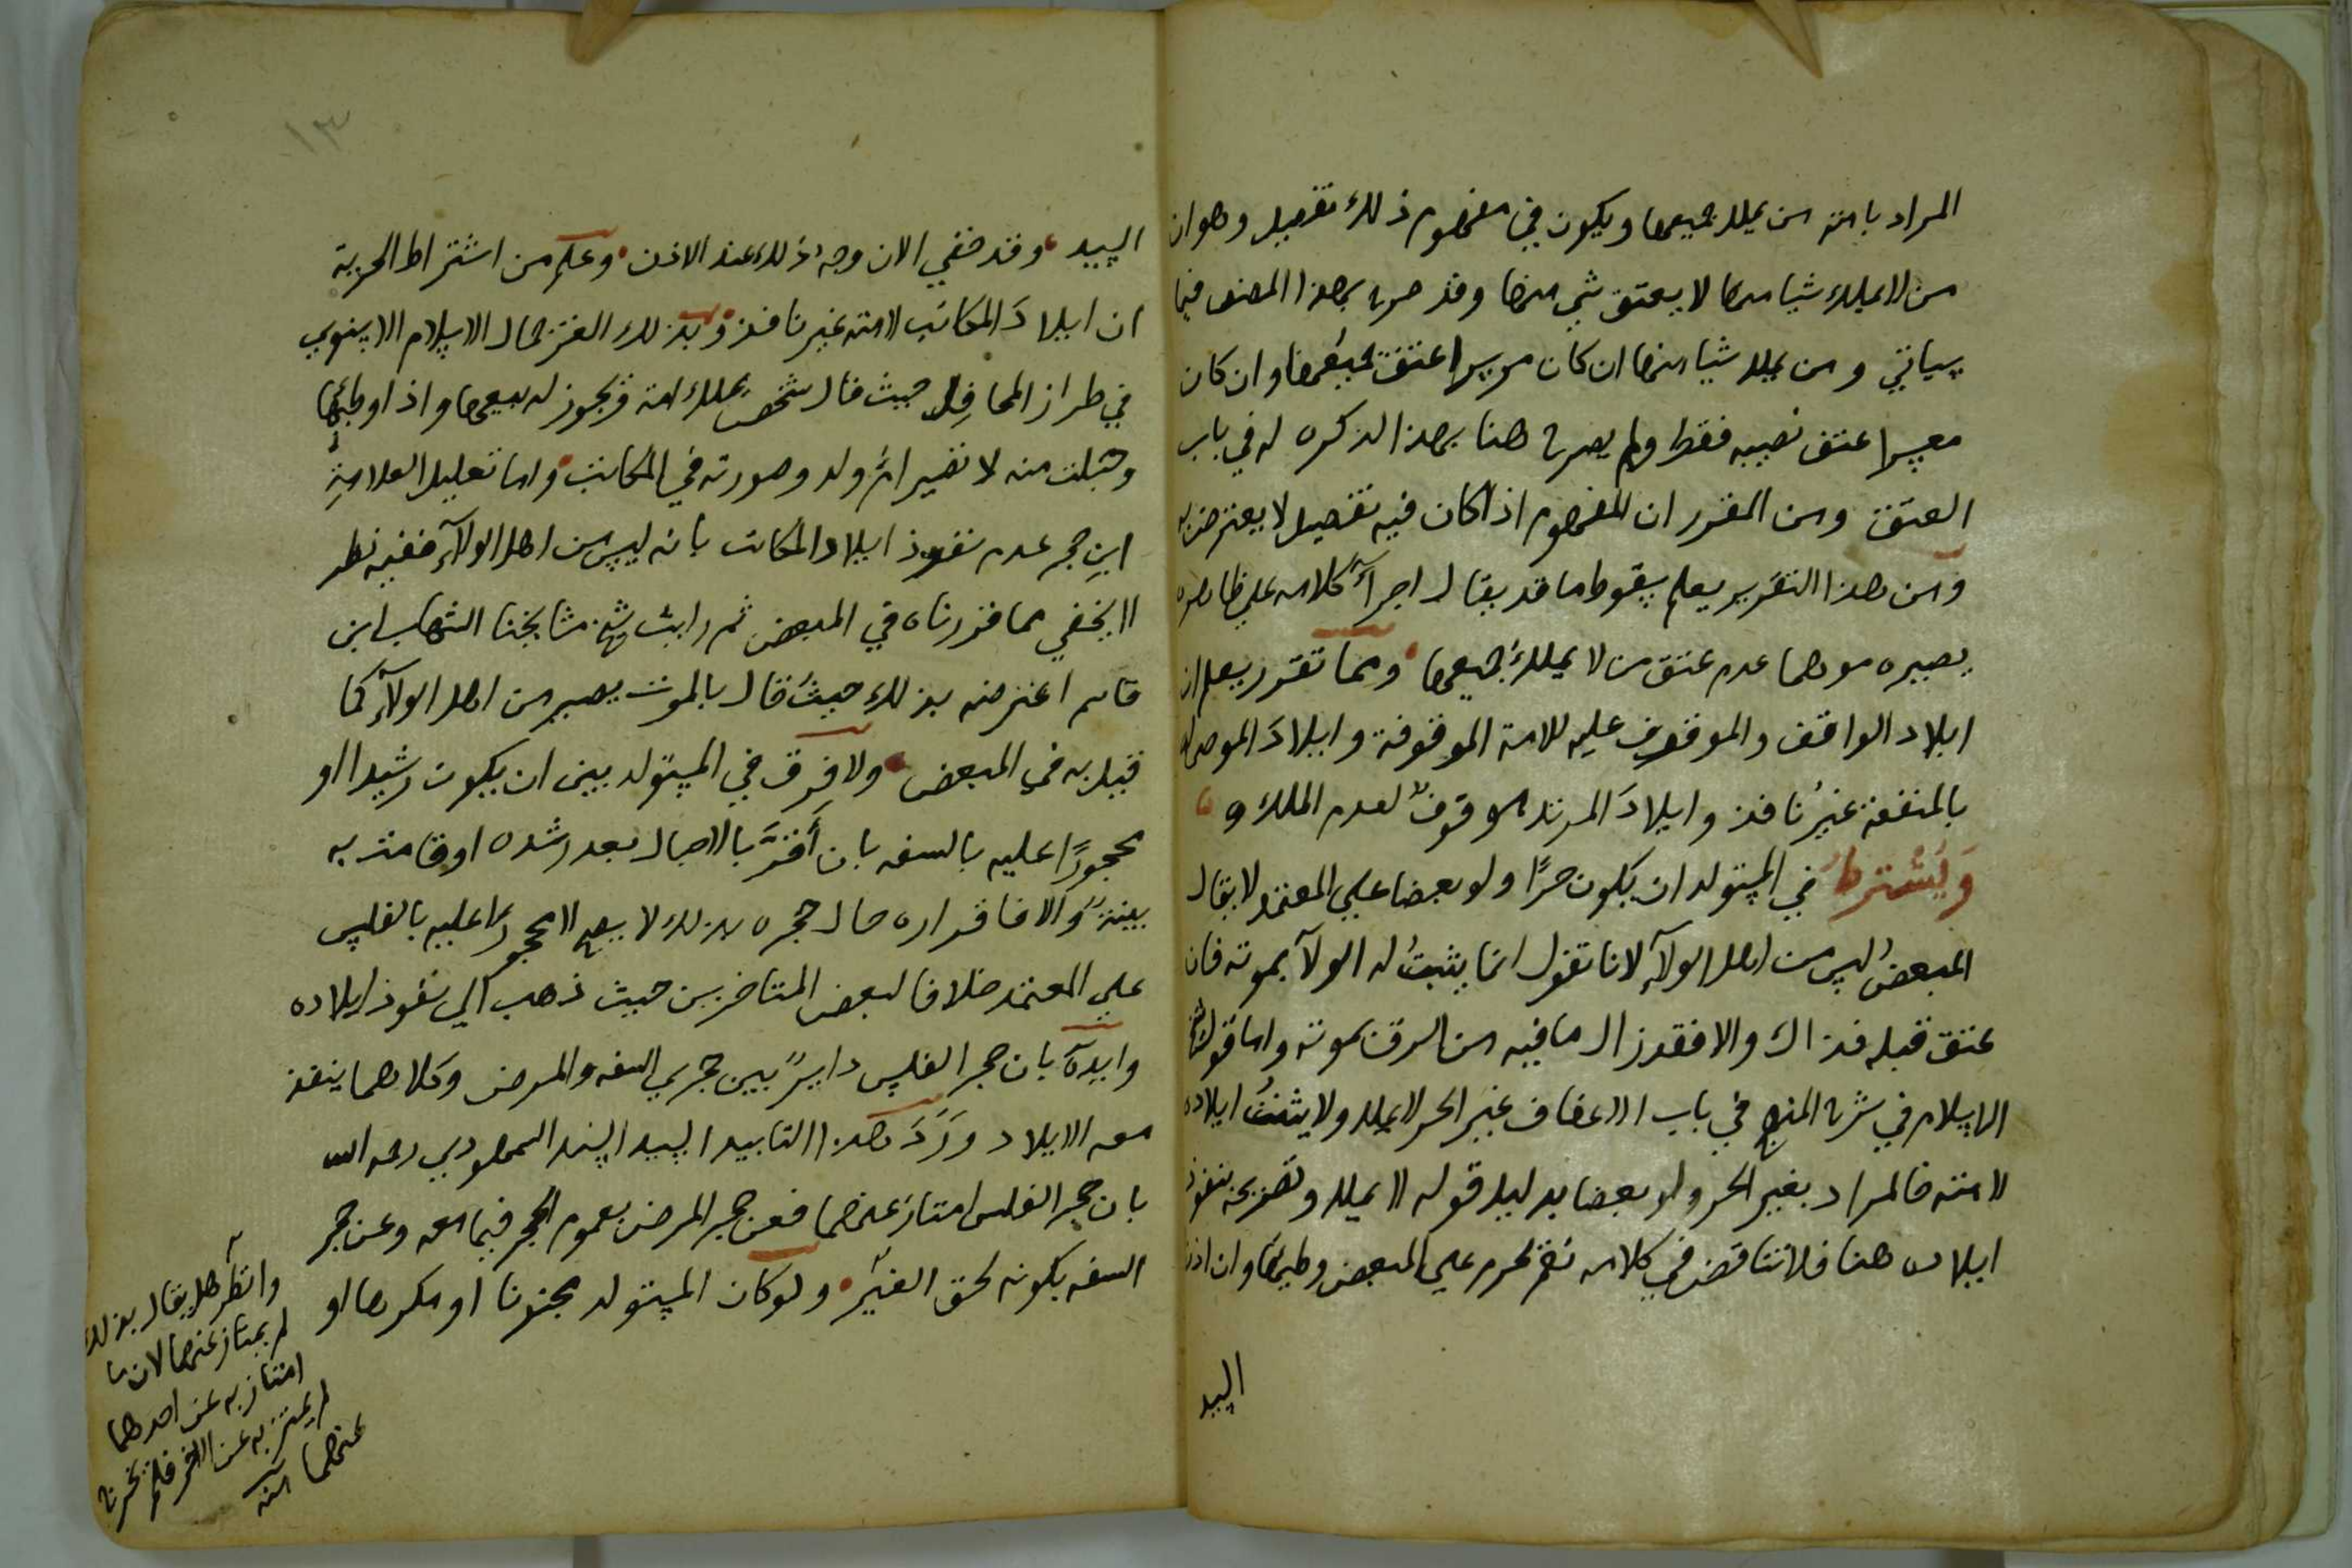 المراد بامته من يملك جميعها ويكون في مفهوم ذلك تفصيل وهو ان
من لا يملك شيا منها لا يعتق شي منها وقد صرح بهذا المصنف فيما
سياتي ومن يملك شيا منها ان كان موسرا عتقت جميعها وان كان
معسرا عتق نصيبه فقط ولم يصرح هنا بهذا لذكره له في باب
العتق ومن المقرر ان المفهوم اذا كان فيه تفصيل لا يعترض به
ومن هذا التقرير يعلم سقوط ما قد يقال اجرآء كلامه علي ظاهره
يصيره موهما عدم عتق من لا يملك جميعها ومما تقرر يعلم ان
ايلاد الواقف والموقوف عليه للامة الموقوفة وايلاد الموصى له
بالمنفعة غير نافذ وايلاد المرتد موقوف لعدم الملك و
ويشترط في المستولد ان يكون حرا ولو بعضا علي المعتمد لا يقال
المبعض ليس من اهل الولآء لانا نقول انما يثبت له الولآ بموته فان
عتق قبله فذاك والا فقد زال ما فيه من الرق بموته واما قول شيخ
الاسلام في شرح المنهج في باب الاعفاف غير الحر لا يملك ولا يثبت ايلاده
لامته فالمراد بغير الحر ولو بعضا بدليل قوله لا يملك وتصريحه بنفوذ
ايلاده هنا فلا تناقض في كلامه نعم يحرم علي المبعض وطيها وان اذن
السيد
١٣
السيد وقد خفي الان وجه ذلك عند الاذن وعلم من اشتراط الحرية
ان ايلاد المكاتب لامته غير نافذ وبذلك الغز جمال الاسلام الاسنوي
في طراز المحافل حيث قال شخص يملك امة ويجوز له بيعها واذا وطئها
وحبلت منه لا تصير ام ولد وصورته في المكاتب واما تعليل العلامة
ابن حجر عدم نفوذ ايلاد المكاتب بانه ليس من اهل الولآء ففيه نظر
لا يخفي مما قررناه في المبعض ثم رايت شيخ مشايخنا الشهاب ابن
قاسم اعترضه بذلك حيث قال بالموت يصير من اهل الولآء كما
قيل به في المبعض ولا فرق في المستولد بين ان يكون رشيدا او
محجورا عليه بالسفه بان أقر بالاحبال بعد رشده او قامت به
بينة والا فاقراره حال حجره بذلك لا يصح لا محجورا عليه بالفلس
علي المعتمد خلافا لبعض المتاخرين حيث ذهب الي نفوذ ايلاده
وايده بان حجر الفلس داير بين حجري السفه والمرض وكلاهما ينفذ
معه الايلاد ورد هذا التاييد السيد السند السمهودي رحمه الله
بان حجر الفلس امتاز عنهما فعن حجر المرض بعموم الحجر فيما معه وعن حجر
السفه بكونه لحق الغير ولو كان المستولد مجنونا او مكرها او
وانظر هل يقال بذلك
لم يمتاز عنهما لان ما
امتاز به عن احدهما
لم يمتز به عن الاخر فلم يخرج
عنهما انته